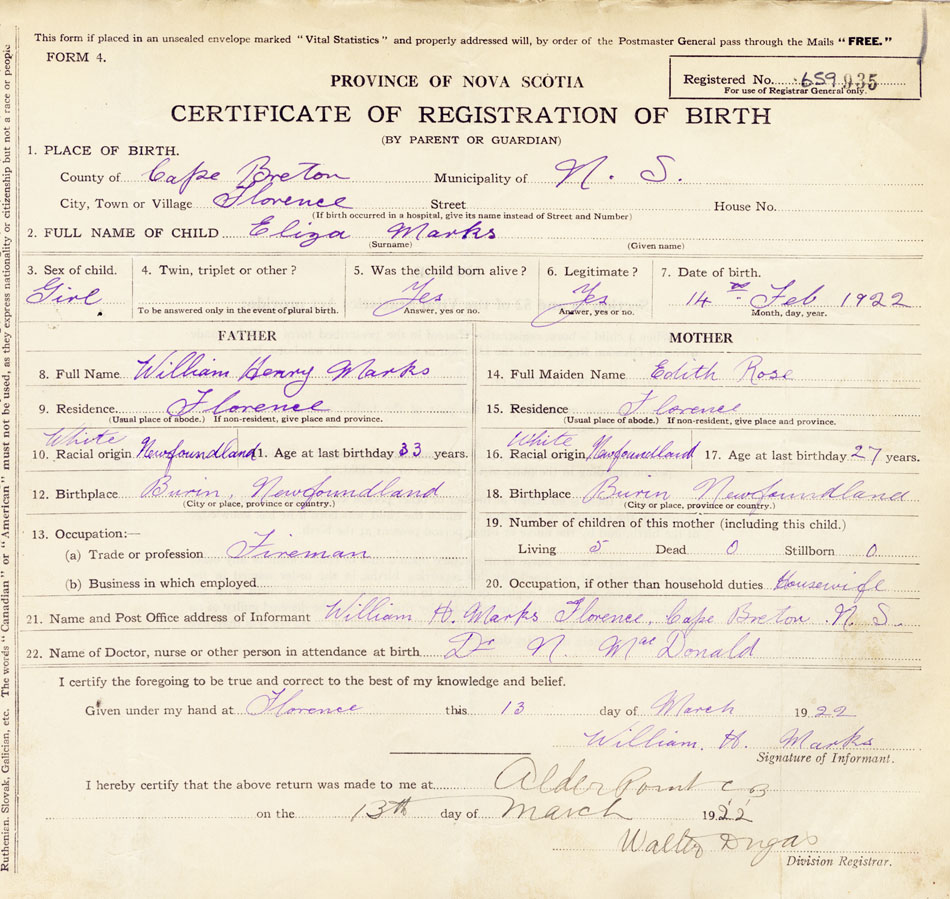 This form if placed in an unsealed envelope marked "Vital Statistics" and properly addressed will, by order of the Postmaster General pass through the Mails "FREE."
FORM 4.
PROVINCE OF NOVA SCOTIA
Registered No. 659 935
For use of Registrar General only.
CERTIFICATE OF REGISTRATION OF BIRTH
(BY PARENT OR GUARDIAN)
1. PLACE OF BIRTH.
County of Cape Breton Municipality of N. S.
City, Town or Village Florence Street House No.
(If birth occurred in a hospital, give its name instead of Street and Number)
2. FULL NAME OF CHILD Eliza Marks
(Surname) (Given name)
3. Sex of child. 4. Twin, triplet or other? 5. Was the child born alive? 6. Legitimate? 7. Date of birth.
Girl Yes Yes 14 Feb 1922
To be answered only in the event of plural birth. Answer, yes or no. Answer, yes or no. Month, day, year.
FATHER
8. Full Name William Henry Marks
9. Residence Florence
(Usual place of abode.) If non-resident, give place and province.
White
10. Racial origin Newfoundland 11. Age at last birthday 33 years.
12. Birthplace Burin, Newfoundland
(City or place, province or country.)
13. Occupation:—
(a) Trade or profession Fireman
(b) Business in which employed
MOTHER
14. Full Maiden Name Edith Rose
15. Residence Florence
(Usual place of abode.) If non-resident, give place and province.
White
16. Racial origin Newfoundland 17. Age at last birthday 27 years.
18. Birthplace Burin Newfoundland
(City or place, province or country.)
19. Number of children of this mother (including this child.)
Living 5 Dead 0 Stillborn 0
20. Occupation, if other than household duties Housewife
21. Name and Post Office address of Informant William H. Marks Florence, Cape Breton N. S.
22. Name of Doctor, nurse or other person in attendance at birth Dr N. MacDonald
I certify the foregoing to be true and correct to the best of my knowledge and belief.
Given under my hand at Florence this 13 day of March 1922
William. H. Marks
Signature of Informant.
I hereby certify that the above return was made to me at Alder Point C B
on the 13th day of March 1922
Walter Dugas
Division Registrar.
Ruthenian, Slovak, Galician, etc. The words "Canadian" or "American" must not be used, as they express nationality or citizenship but not a race or people